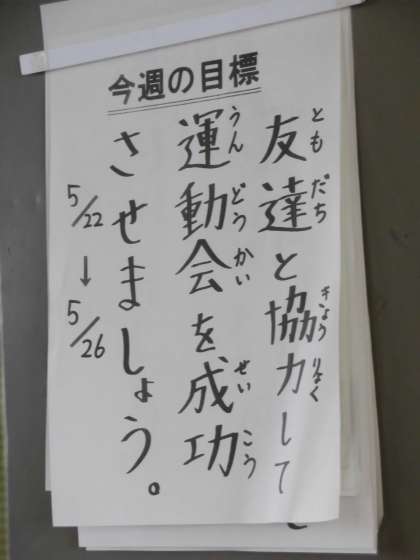 今週の目標
友達と協力して
ともだち きょうりょく
運動会を成功
うんどうかい せいこう
させましょう。
5/22 → 5/26